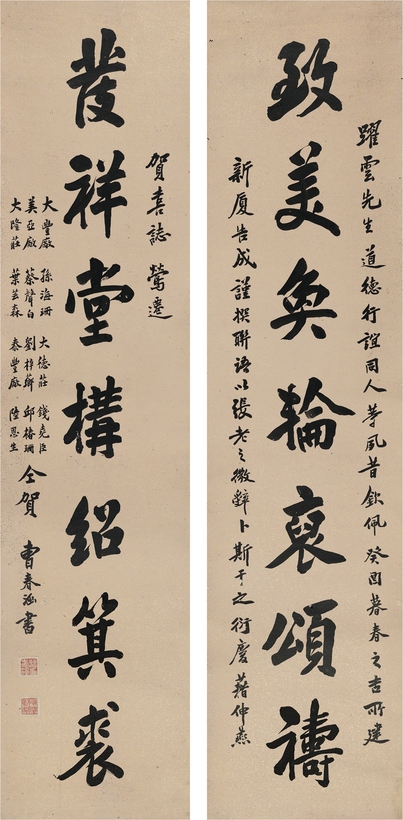 躍雲先生道德行誼同人等夙昔欽佩癸酉暮春之吉所建
致美奐輪裒頌禱
新廈告成謹撰聯語以張老之微辭卜斯干之衍慶藉伸燕
賀喜誌鶯遷
發祥堂構紹箕裘
大豐廠 孫海珊 大德莊 錢堯臣
美亞廠 蔡聲白 劉梓薪 邱椿珊
大隆莊 葉芸森 泰豐廠 陸恩生
仝賀 曹春涵書